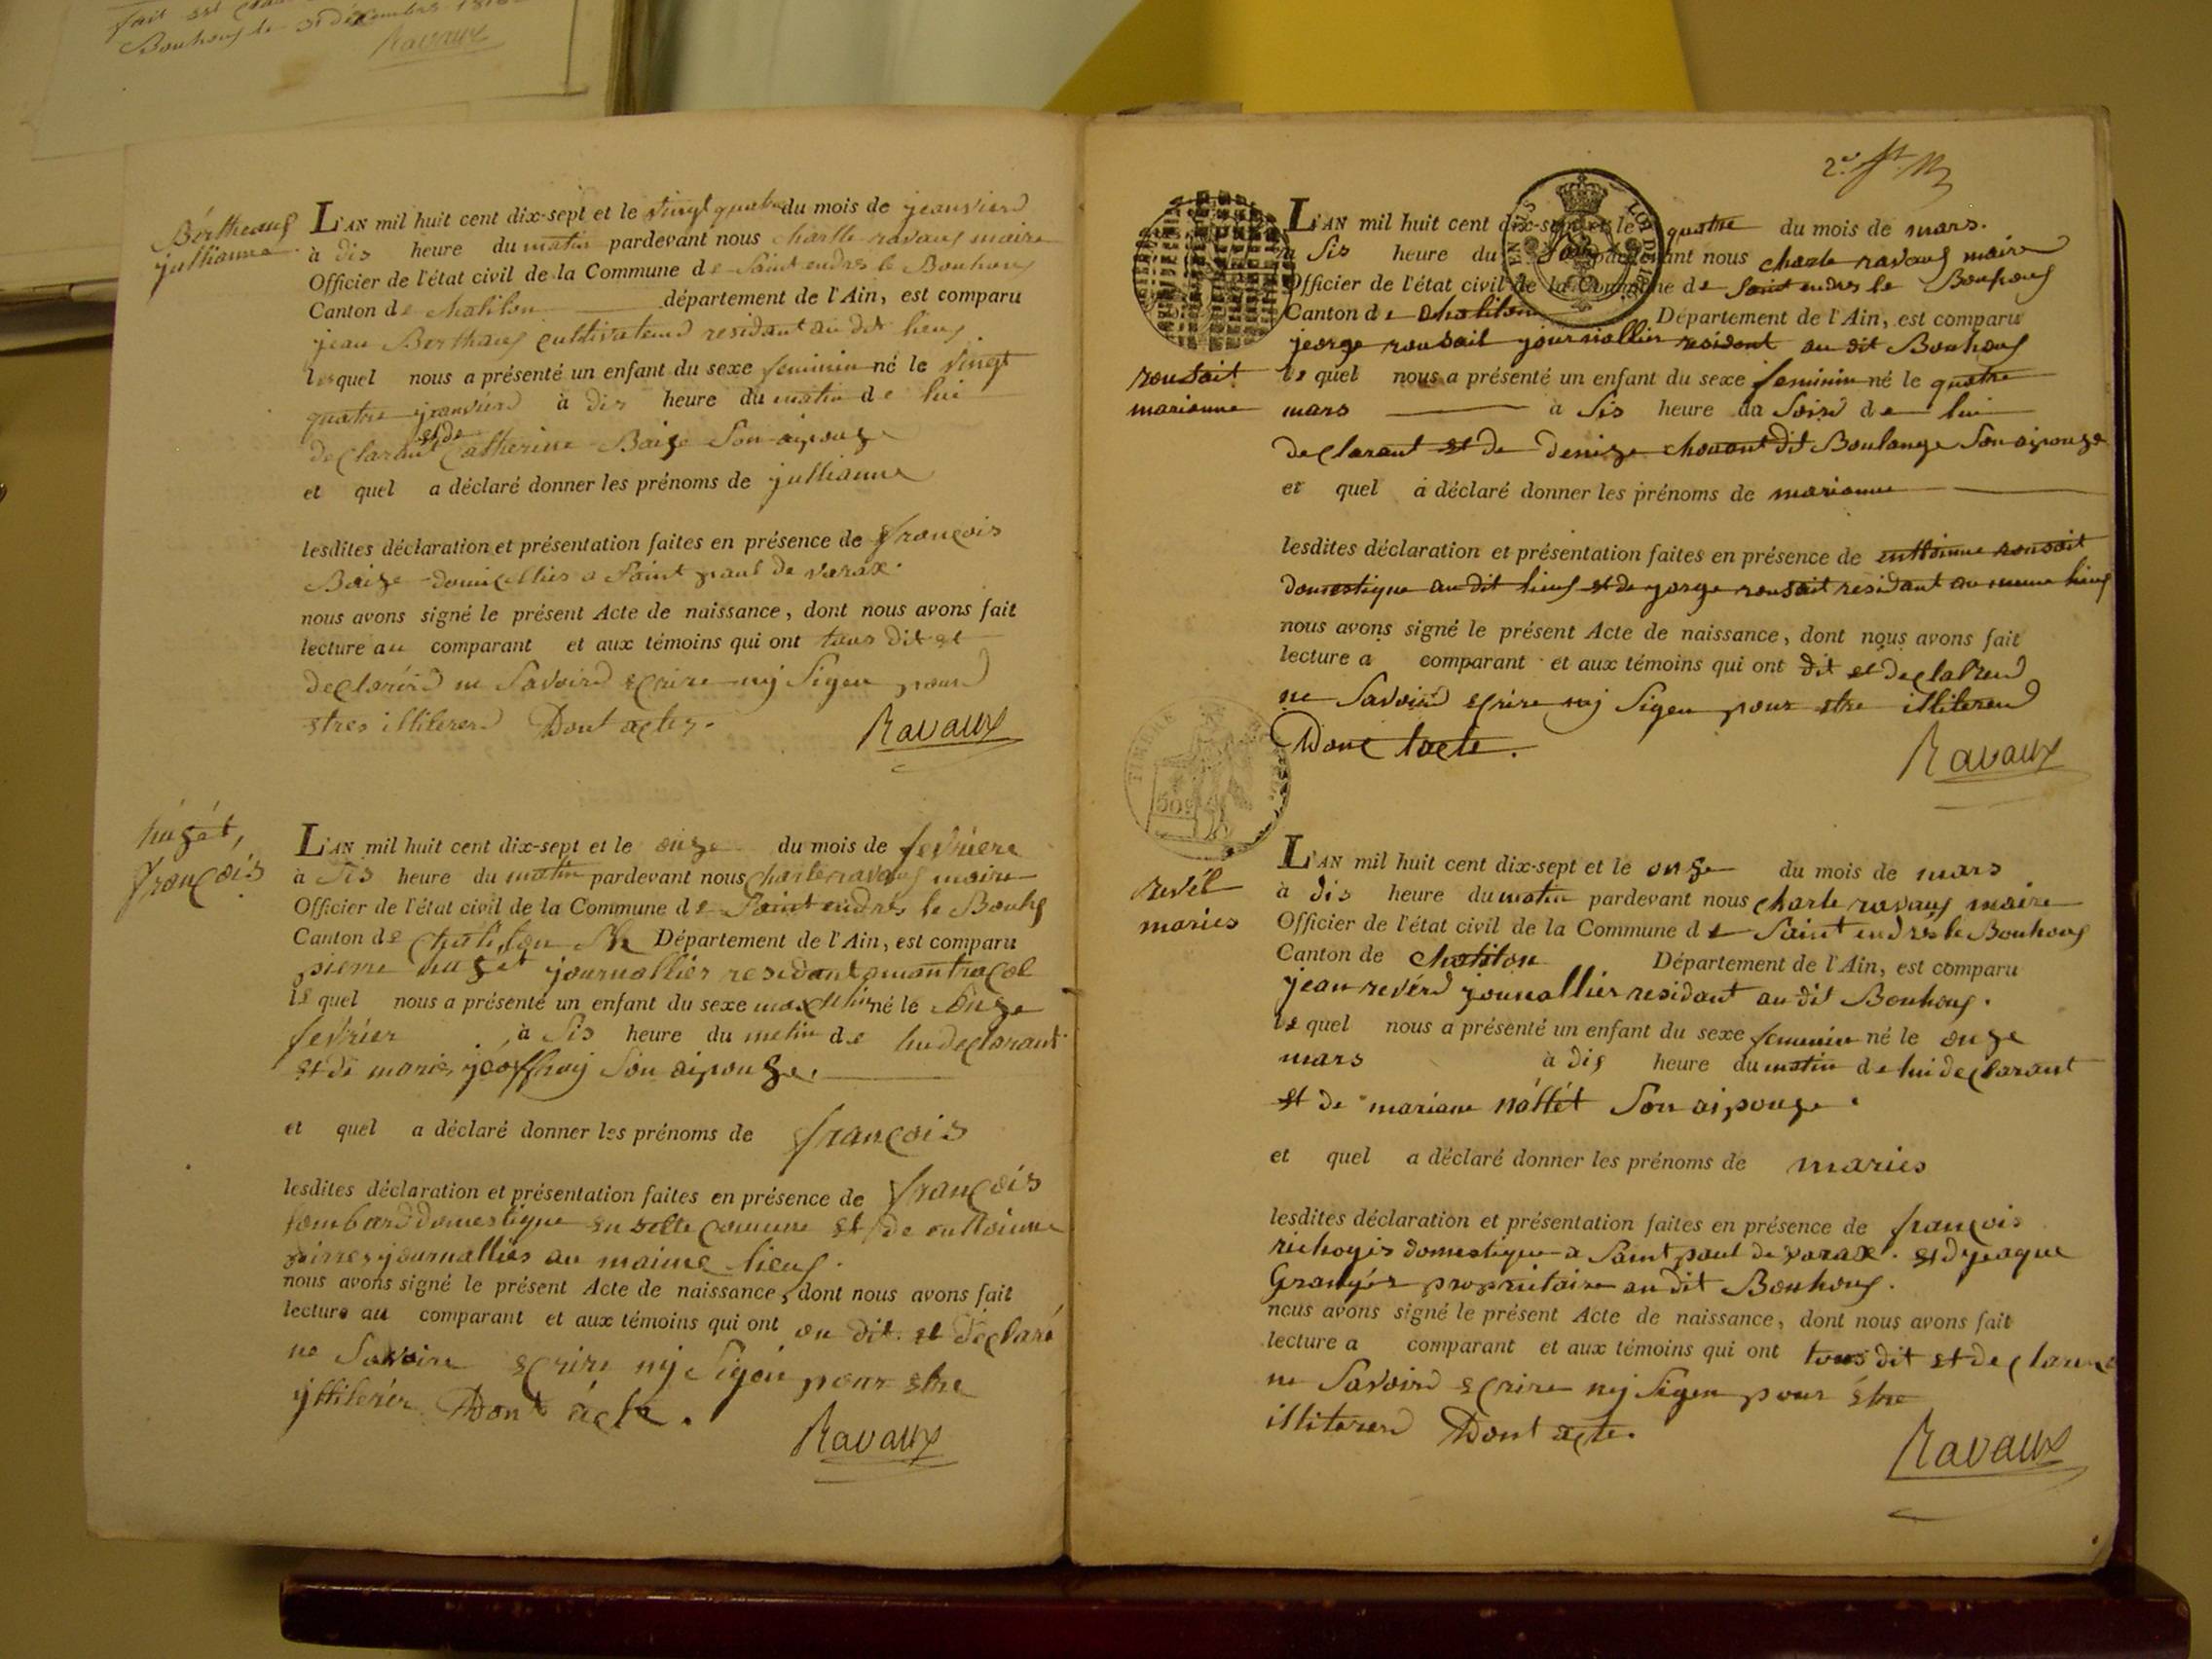 fait est
Bouhouj le 31 décembre
Ravaux
Bértheauj
jullianne
L'AN mil huit cent dix-sept et le vingt quatre du mois de jeanvierd
à dis heure du matin pardevant nous charlle ravauj maire
Officier de l'état civil de la Commune de Saint endres le Bouhouj
Canton de chatilon département de l'Ain, est comparu
jean Berthauj cultivateurd residant au dit lieuj
lesquel nous a présenté un enfant du sexe feminin né le vingt
quatre jeanvierd à dis heure du matin de lui
declarant et de Catherine Baize Son aipouze
et quel a déclaré donner les prénoms de jullianne
lesdites déclaration et présentation faites en présence de françois
Baize domicillies a Saint paul de varax.
nous avons signé le présent Acte de naissance, dont nous avons fait
lecture au comparant et aux témoins qui ont tous dit et
declarérd ne Savoird ecrire nij Sigen pourd
etres illiterérd Dont actes.
Ravaux
húgét,
françois
L'AN mil huit cent dix-sept et le onze du mois de fevriere
à Sis heure du matin pardevant nous charle ravauj maire
Officier de l'état civil de la Commune de Saint endres le Bouhj
Canton de chatilon Département de l'Ain, est comparu
pierre hugét journallier residant amantracol
le quel nous a présenté un enfant du sexe masculin né le onze
fevrier à Sis heure du metin de lui declarant
et de maries jéoffraij Son aipouze.
et quel a déclaré donner les prénoms de françois
lesdites déclaration et présentation faites en présence de françois
lombard domestique en selle comune et de enttoinne
journallies au maime lieuj.
nous avons signé le présent Acte de naissance, dont nous avons fait
lecture au comparant et aux témoins qui ont on dit et declaré
ne Savoire ecrire nij Sigén pour etre
jlliterér Dont acte.
Ravaux
2e
L'AN mil huit cent dix-sept et le quatre du mois de mars.
à Sis heure du Soir pardevant nous charle ravauj maire
Officier de l'état civil de la Commune de Saint endres le Bouhouj
Canton de chatilon Département de l'Ain, est comparu
jeorge rousait journallier residant au dit Bouhouj
rousait
marianne
le quel nous a présenté un enfant du sexe feminin né le quatre
mars à Sis heure du Soird de lui
declarant et de denize chouant dit Boulange Son aipouze
et quel a déclaré donner les prénoms de marianne
lesdites déclaration et présentation faites en présence de enttoinne rousait
domestique au dit lieuj et de jorge rousait residant au meme lieuj
nous avons signé le présent Acte de naissance, dont nous avons fait
lecture a comparant et aux témoins qui ont dit et declalrend
ne Savoird ecrire nij Sigen pour etre illiterend
Dont lacte.
Ravaux
TIMBRE
50c
revél
maries
L'AN mil huit cent dix-sept et le onze du mois de mars
à dis heure du matin pardevant nous charle ravauj maire
Officier de l'état civil de la Commune de Saint endrés le Bouhouj
Canton de chatilon Département de l'Ain, est comparu
jean revérd jounallier residant au dit Bouhouj.
le quel nous a présenté un enfant du sexe feminin né le onze
mars à dis heure du matin de lui declarant
et de mariane náttét Son aipouze.
et quel a déclaré donner les prénoms de maries
lesdites déclaration et présentation faites en présence de françois
richogis domestique a Saint paul de varax. et djeaque
Granjér propriétaire au dit Bouhouj.
nous avons signé le présent Acte de naissance, dont nous avons fait
lecture a comparant et aux témoins qui ont tous dit et de
ne Savoird ecrire nij Sigen pour être
illitererd Dont acte.
Ravaux